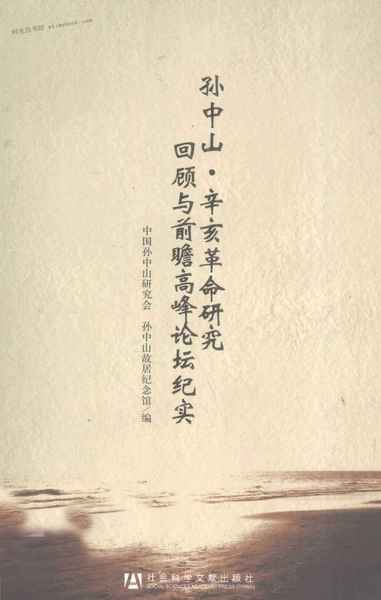 孙中山·辛亥革命研究
回顾与前瞻高峰论坛纪实
中国孙中山研究会 孙中山故居纪念馆/编
社会科学文献出版社
SOCIAL SCIENCES ACADEMIC PRESS (CHINA)